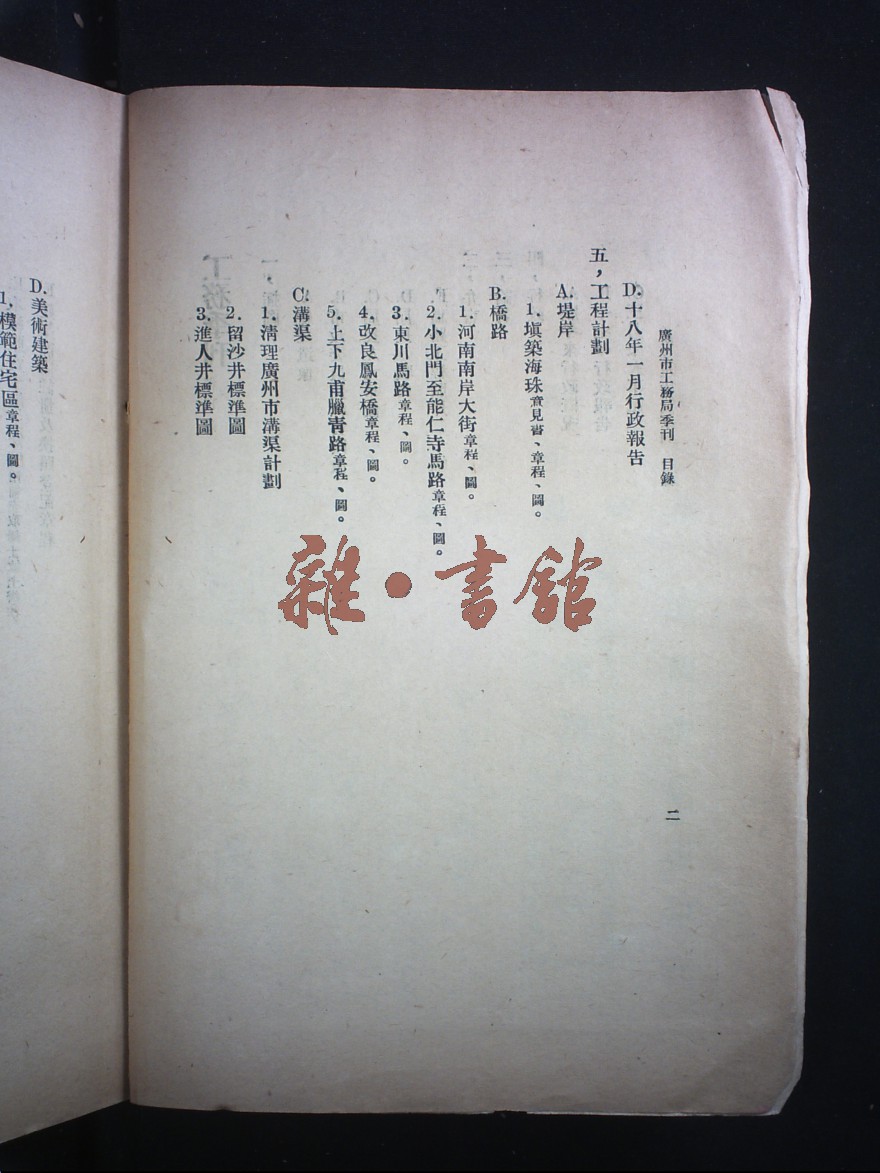 廣州市工務局季刊　目錄
二
D.十八年一月行政報告
五，工程計劃
A.堤岸
1.塡築海珠意見書、章程、圖。
B.橋路
1.河南南岸大街章程、圖。
2.小北門至能仁寺馬路章程、圖。
3.東川馬路章程、圖。
4.改良鳳安橋章程、圖。
5.上下九甫臘青路章程、圖。
C.溝渠
1.清理廣州市溝渠計劃
2.留沙井標準圖
3.進人井標準圖
D.美術建築
1.模範住宅區章程、圖。
雜·書館